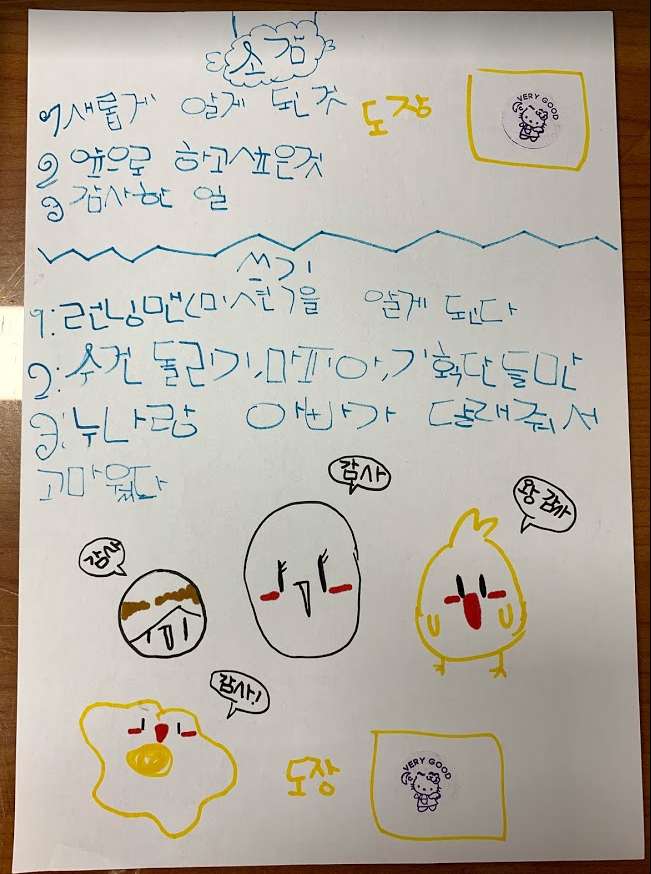 소감
1 새롭게 알게 된 것
도장
VERY GOOD
2 앞으로 하고싶은것
3 감사한 일
쓰기
1: 런닝맨(미션)을 알게 된다
2: 수건 돌리기, 마피아, 기획단 들만
3: 누나랑 아빠가 달래줘서
고마웠다
감사
왕 감사
감사
감사!
도장
VERY GOOD